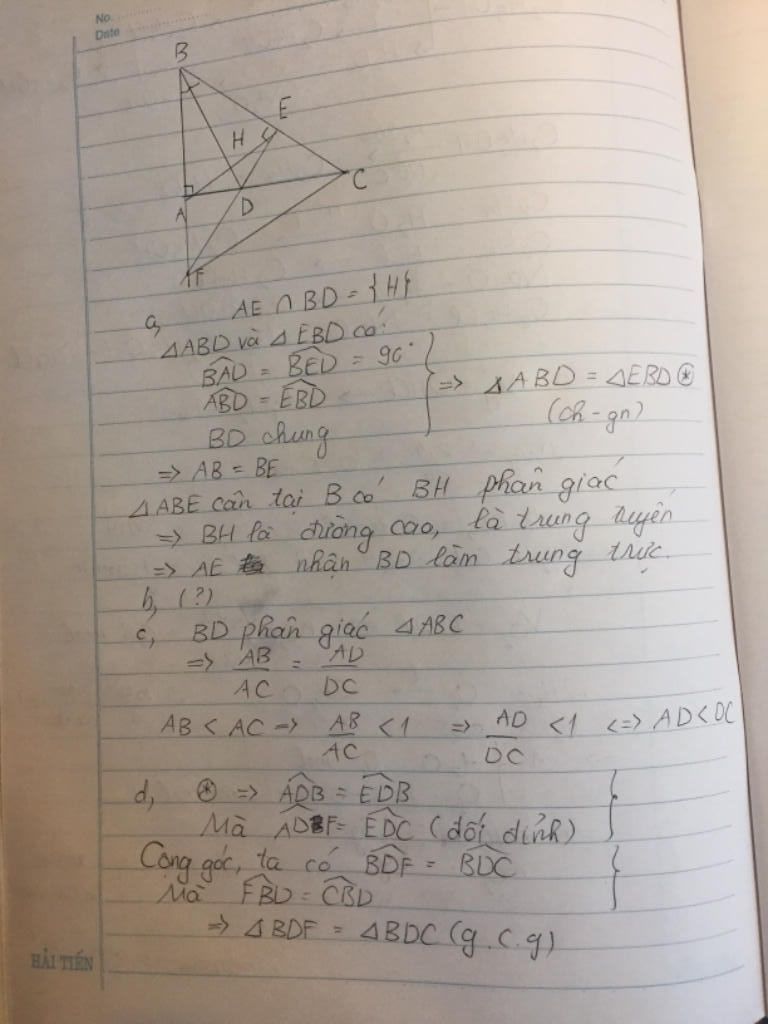 No.
Date
B
E
H
C
A
D
F
a, AE ∩ BD = {H}
△ABD và △EBD có:
BAD = BED = 90°
ABD = EBD
BD chung
=> △ABD = △EBD (*)
(ch - gn)
=> AB = BE
△ABE cân tại B có BH phân giác
=> BH là đường cao, là trung tuyến
=> AE nhận BD làm trung trực.
b, (?)
c, BD phân giác △ABC
=> AB/AC = AD/DC
AB < AC => AB/AC < 1 => AD/DC < 1 <=> AD < DC
d, (*) => ADB = EDB
Mà ADF = EDC (đối đỉnh)
Cộng góc, ta có BDF = BDC
Mà FBD = CBD
=> △BDF = △BDC (g.c.g)
HẢI TIẾN